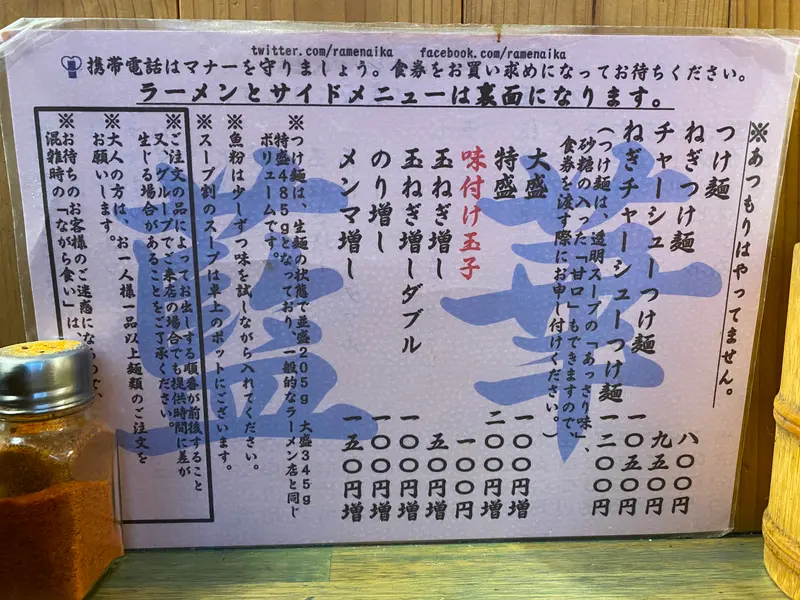 twitter.com/ramenaika facebook.com/ramenaika
携帯電話はマナーを守りましょう。食券をお買い求めになってお待ちください。
ラーメンとサイドメニューは裏面になります。
※あつもりはやってません。
つけ麺 八〇〇円
ねぎつけ麺 九五〇円
チャーシューつけ麺 一〇五〇円
ねぎチャーシューつけ麺 一二〇〇円
(つけ麺は、透明スープの「あっさり味」、
砂糖の入った「甘口」もできますので、
食券を渡す際にお申し付けください。)
大盛 一〇〇円増
特盛 二〇〇円増
味付け玉子 一〇〇円
玉ねぎ増し 五〇円増
玉ねぎ増しダブル 一〇〇円増
のり増し 一〇〇円増
メンマ増し 一五〇円増
※つけ麺は、生麺の状態で並盛205g 大盛345g
特盛485gとなっており、一般的なラーメン店と同じ
ボリュームです。
※魚粉は少しずつ味を試しながら入れてください。
※スープ割のスープは卓上のポットにございます。
※ご注文の品によってお出しする順番が前後すること
又、グループでご来店の場合でも提供時間に差が
生じる場合があることをご了承ください。
※大人の方は、お一人様一品以上麺類のご注文を
お願いします。
※お待ちのお客様のご迷惑になるので、
混雑時の「ながら食い」は、
藍華